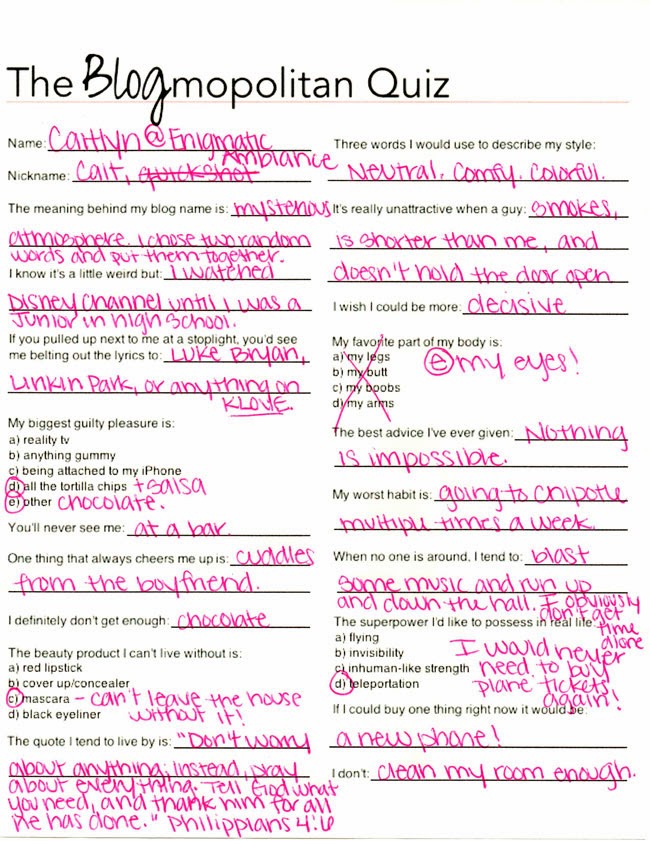 The Blogmopolitan Quiz
Name: Caitlyn @ Enigmatic
Ambiance
Nickname: Cait, quickshot
The meaning behind my blog name is: mysterious
atmosphere. I chose two random
words and put them together.
I know it's a little weird but: I watched
Disney Channel until I was a
Junior in high school.
If you pulled up next to me at a stoplight, you'd see
me belting out the lyrics to: Luke Bryan,
Linkin Park, or anything on
KLOVE.
My biggest guilty pleasure is:
a) reality tv
b) anything gummy
c) being attached to my iPhone
d) all the tortilla chips + salsa
e) other chocolate.
You'll never see me: at a bar.
One thing that always cheers me up is: cuddles
from the boyfriend.
I definitely don't get enough: chocolate
The beauty product I can't live without is:
a) red lipstick
b) cover up/concealer
c) mascara - can't leave the house
without it!
d) black eyeliner
The quote I tend to live by is: "Don't worry
about anything; instead, pray
about everything. Tell God what
you need, and thank him for all
he has done." Philippians 4:6
Three words I would use to describe my style:
Neutral. Comfy. Colorful.
It's really unattractive when a guy: smokes,
is shorter than me, and
doesn't hold the door open
I wish I could be more: decisive
My favorite part of my body is:
a) my legs
b) my butt
c) my boobs
d) my arms
e) my eyes!
The best advice I've ever given: Nothing
is impossible.
My worst habit is: going to Chipotle
multiple times a week.
When no one is around, I tend to: blast
some music and run up
and down the hall. I obviously
don't get
time
alone
The superpower I'd like to possess in real life:
a) flying
b) invisibility
c) inhuman-like strength
d) teleportation
I would never
need to buy
plane tickets
again!
If I could buy one thing right now it would be:
a new phone!
I don't: clean my room enough.